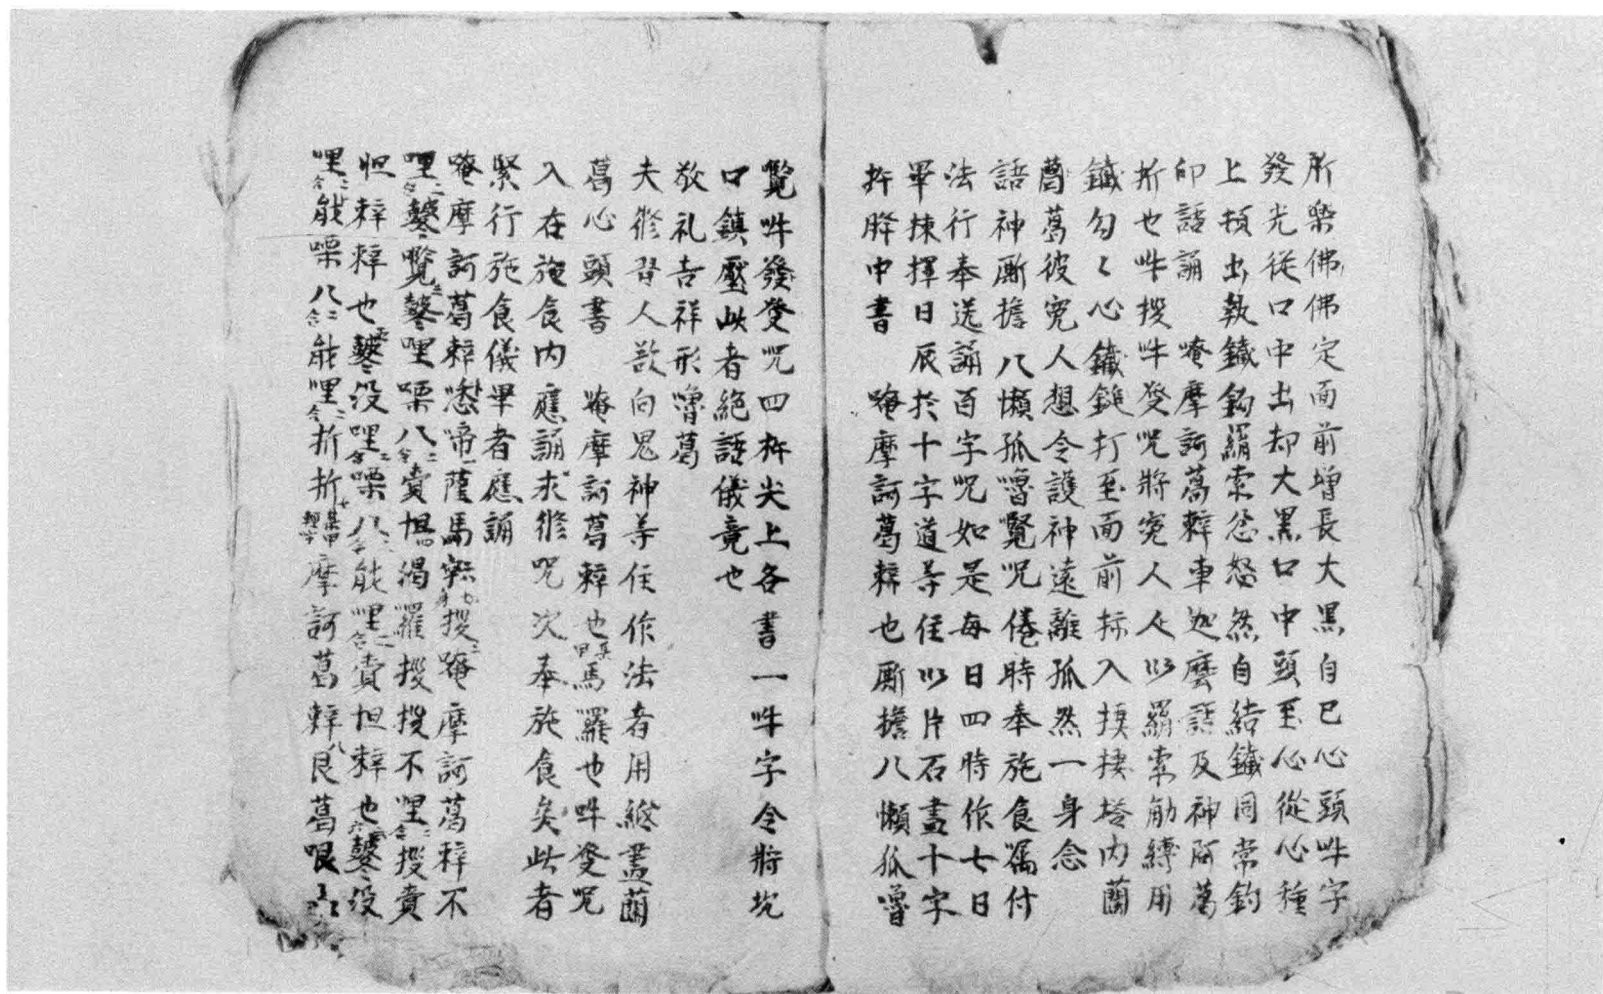 所樂佛佛定面前增長大黑自己心頭吽字
發光從口中出却大黑口中頭至心從心種
上頂出執鐵鈎羂索忿怒然自結鐵同常鈎
印話誦　唵摩訶葛辢車迦麼話及神阿葛
折也吽授吽癹咒將寃人人以羂索觔縛用
鐵勾〻心鐵鎚打至面前掠入捿捿塔内蔨
蔨葛彼寃人想令護神遠離孤然一身念
語神廝擔八懶孤嚕覽咒倦時奉施食囑付
法行奉送誦百字咒如是每日四時作七日
畢揀擇日辰於十字道等住以片石畫十字
杵胮中書　唵摩訶葛辢也廝擔八懶孤嚕
覽吽發癹咒四杵尖上各書一吽字令將坑
口鎮壓此者絶語儀竟也
敬礼吉祥形嚕葛
夫修習人欲向鬼神等住作法者用紙畫蔨
葛心頭書　唵摩訶葛辢也馬羅也吽癹咒
入在施食内應誦求修咒次奉施食矣此者
緊行施食儀畢者應誦
唵摩訶葛辢　啼薩馬　授唵摩訶葛辢不
哩二合鼟覽鼟哩㗚八二合賣怛渴羅授授不哩二合授賁
怛辢辢也鼟没哩二合㗚八能哩二合賁怛辢也鼟没
哩二合能㗚八二合能哩二合折折摩訶葛辢八艮葛哏